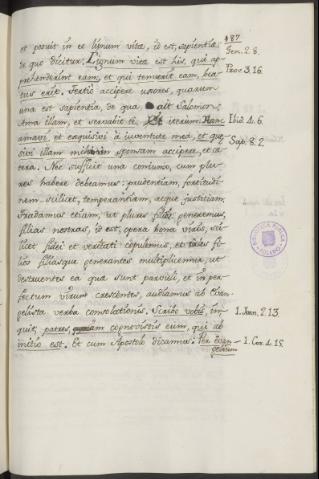 487
et posuit in eo lignum vitæ, id est, sapientiæ
Gen. 2. 8.
de quo dicitur. Lignum vitæ est his, qui ap-
prehenderint eam, et qui tenuerit eam, bea-
Prov. 3. 16.
tus erit. Fecit accipere uxores, quarum
una est sapientia, de qua ait Salomon,
Ama illam, et servabit te iterum. Hanc
Ibid. 4. 6.
amavi et exquisivi a iuventute mea, et quæ-
Sap. 8. 2.
sivi illam sponsam accipere, et cæ-
tera. Nec sufficit una coniunx, cum plu-
res habere debeamus: prudentiam, fortitudi-
nem scilicet, temperantiam, atque justitiam.
Tradamus etiam, ut plures filios generemus,
filias nostras, id est, opera bona viris, sci-
licet fidei et veritati copulemus, et tales fi-
lios filiasque generantes multiplicemur, ut
destruentes ea quæ sunt parvuli, et in per-
fectum virum crescentes, audiamus ab Evan-
gelista verba consolationis. Scribo vobis, in-
1. Joan. 2. 13.
quit, patres, quoniam cognovistis eum, qui ab
initio est. Et cum Apostolo dicamus: Per Evan-
1. Cor. 4. 15.
gelium